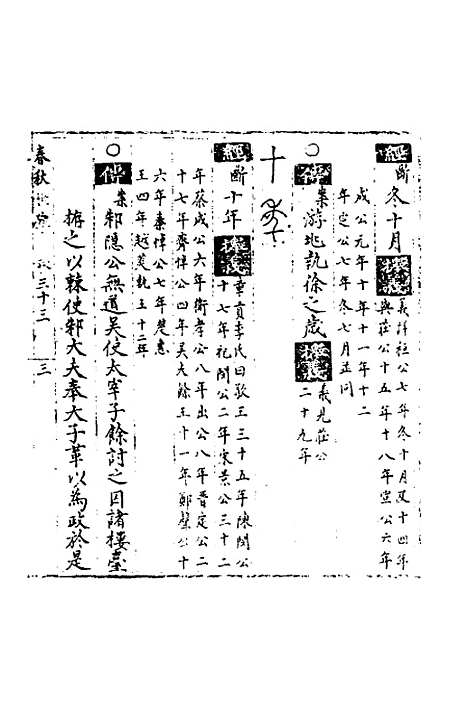 經 斷 冬十月 擬義 義詳桓公七年冬十月及十四年
與莊公十五年十八年宣公六年
成公元年十年十一年十二
年定公七年冬七月並同
○傳 案 游地執徐之歲 擬義 義見莊公
二十九年
十年
經 斷 十年 擬義 章貢李氏曰敬王三十五年陳閔公
十七年杞閔公二年宋景公三十二
年蔡成公六年衛孝公八年出公八年晉定公二
十七年齊悼公四年吳夫餘王十一年鄭聲公十
六年秦悼公七年楚惠
王四年越菼執王十二年
○傳 案 邾隱公無道吳使太宰子餘討之囚諸樓臺
栫之以棘使邾大夫奉大子革以為政於是
春秋 三十三 三